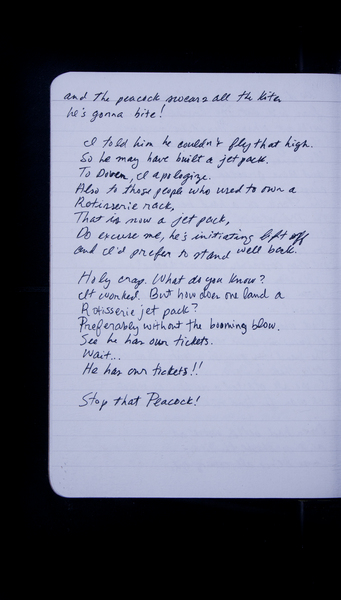 and the peacock swears all the kites
he's gonna bite!
I told him he couldn't fly that high.
So he may have built a jet pack.
To Doven, I apologize.
Also to those people who used to own a
Rotisserie rack,
That is now a jet pack,
Do excuse me, he's initiating lift off
and I'd prefer to stand well back.
Holy crap. What do you know?
It worked. But how does one land a
Rotisserie jet pack?
Preferably without the booming blow.
See he has our tickets.
Wait...
He has our tickets!!
Stop that Peacock!